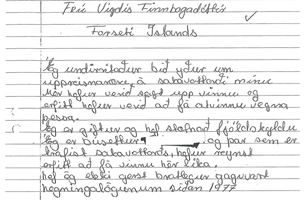 Frú Vigdís Finnbogadóttir
Forseti Íslands
Ég undirritaður bið yður um
uppreisnæru, á sakavottorði mínu
Mér hefur verið sagt upp vinnu og
erfitt hefur verið að fá atvinnu vegna
þessa.
Ég er giftur og hef stofnað fjölskyldu
Ég er búsettur og þar sem er
krafist sakavottorðs, hefur reynst
erfitt að fá vinnu hér líka.
hef ég ekki gerst brotlegur gagnvart
hegningalögunum síðan 1977